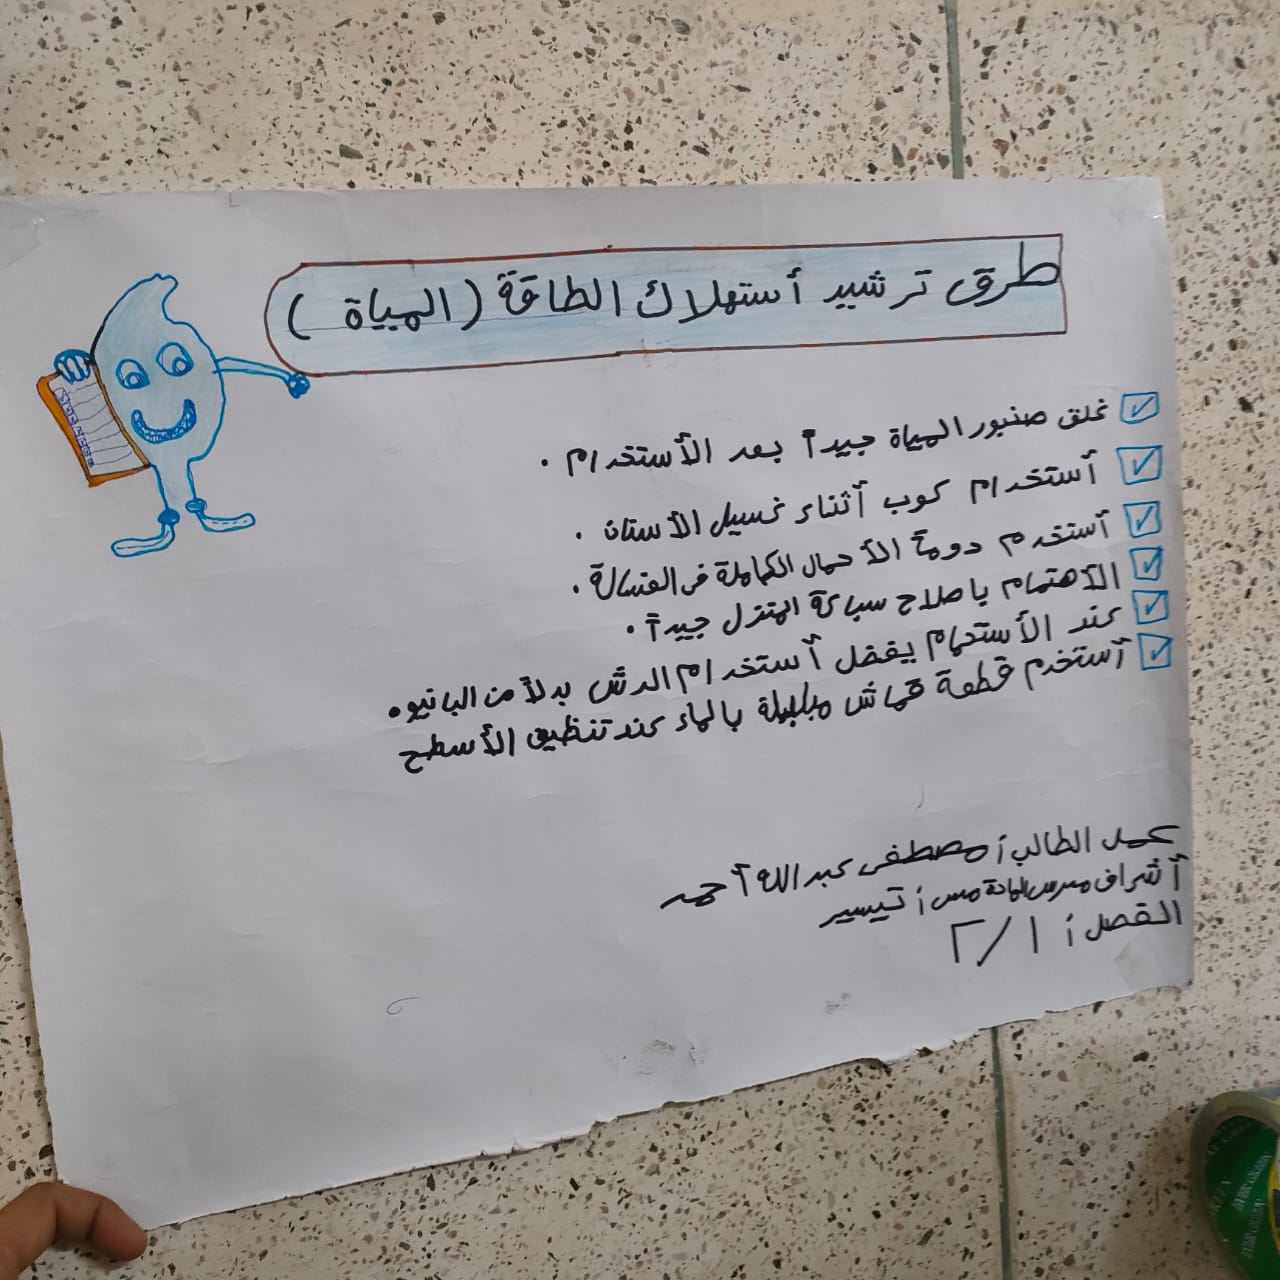 طرق ترشيد أستهلاك الطاقة (المياة)
غلق صنبور المياة جيدآ بعد الأستخدام .
أستخدام كوب أثناء غسيل الأسنان .
أستخدم دومآ الأحمال الكاملة فى الغسالة .
الأهتمام باصلاح سباكة المنزل جيدآ .
عند الأستحمام يفضل أستخدام الدش بدلآ من البانيو .
أستخدم قطعة قماش مبللة بالماء عند تنظيف الأسطح
عمل الطالب : مصطفى عبد الله أحمد
أشراف مدرس المادة مس : تيسير
الفصل : ٢/١